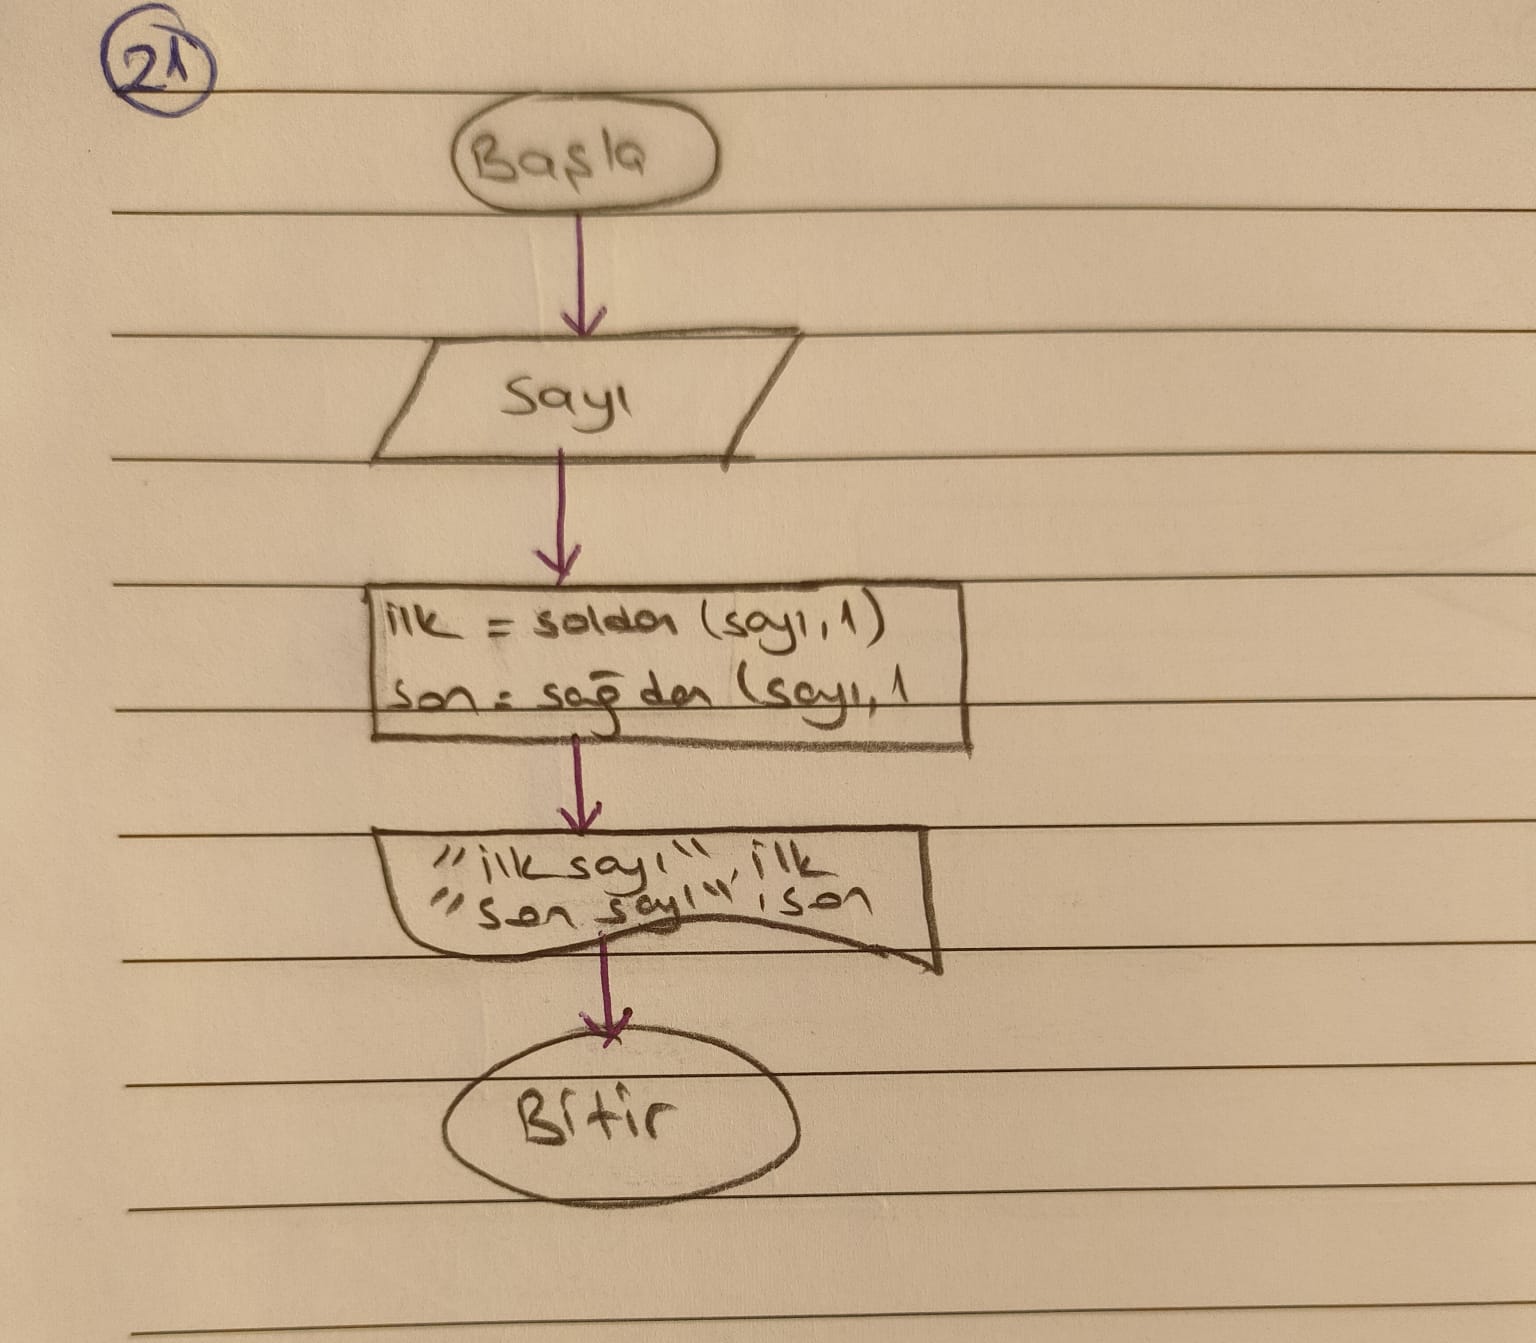 21
Başla
Sayı
ilk = soldan (sayı, 1)
son = sağdan (sayı, 1
"ilk sayı", ilk
"son sayı", son
Bitir